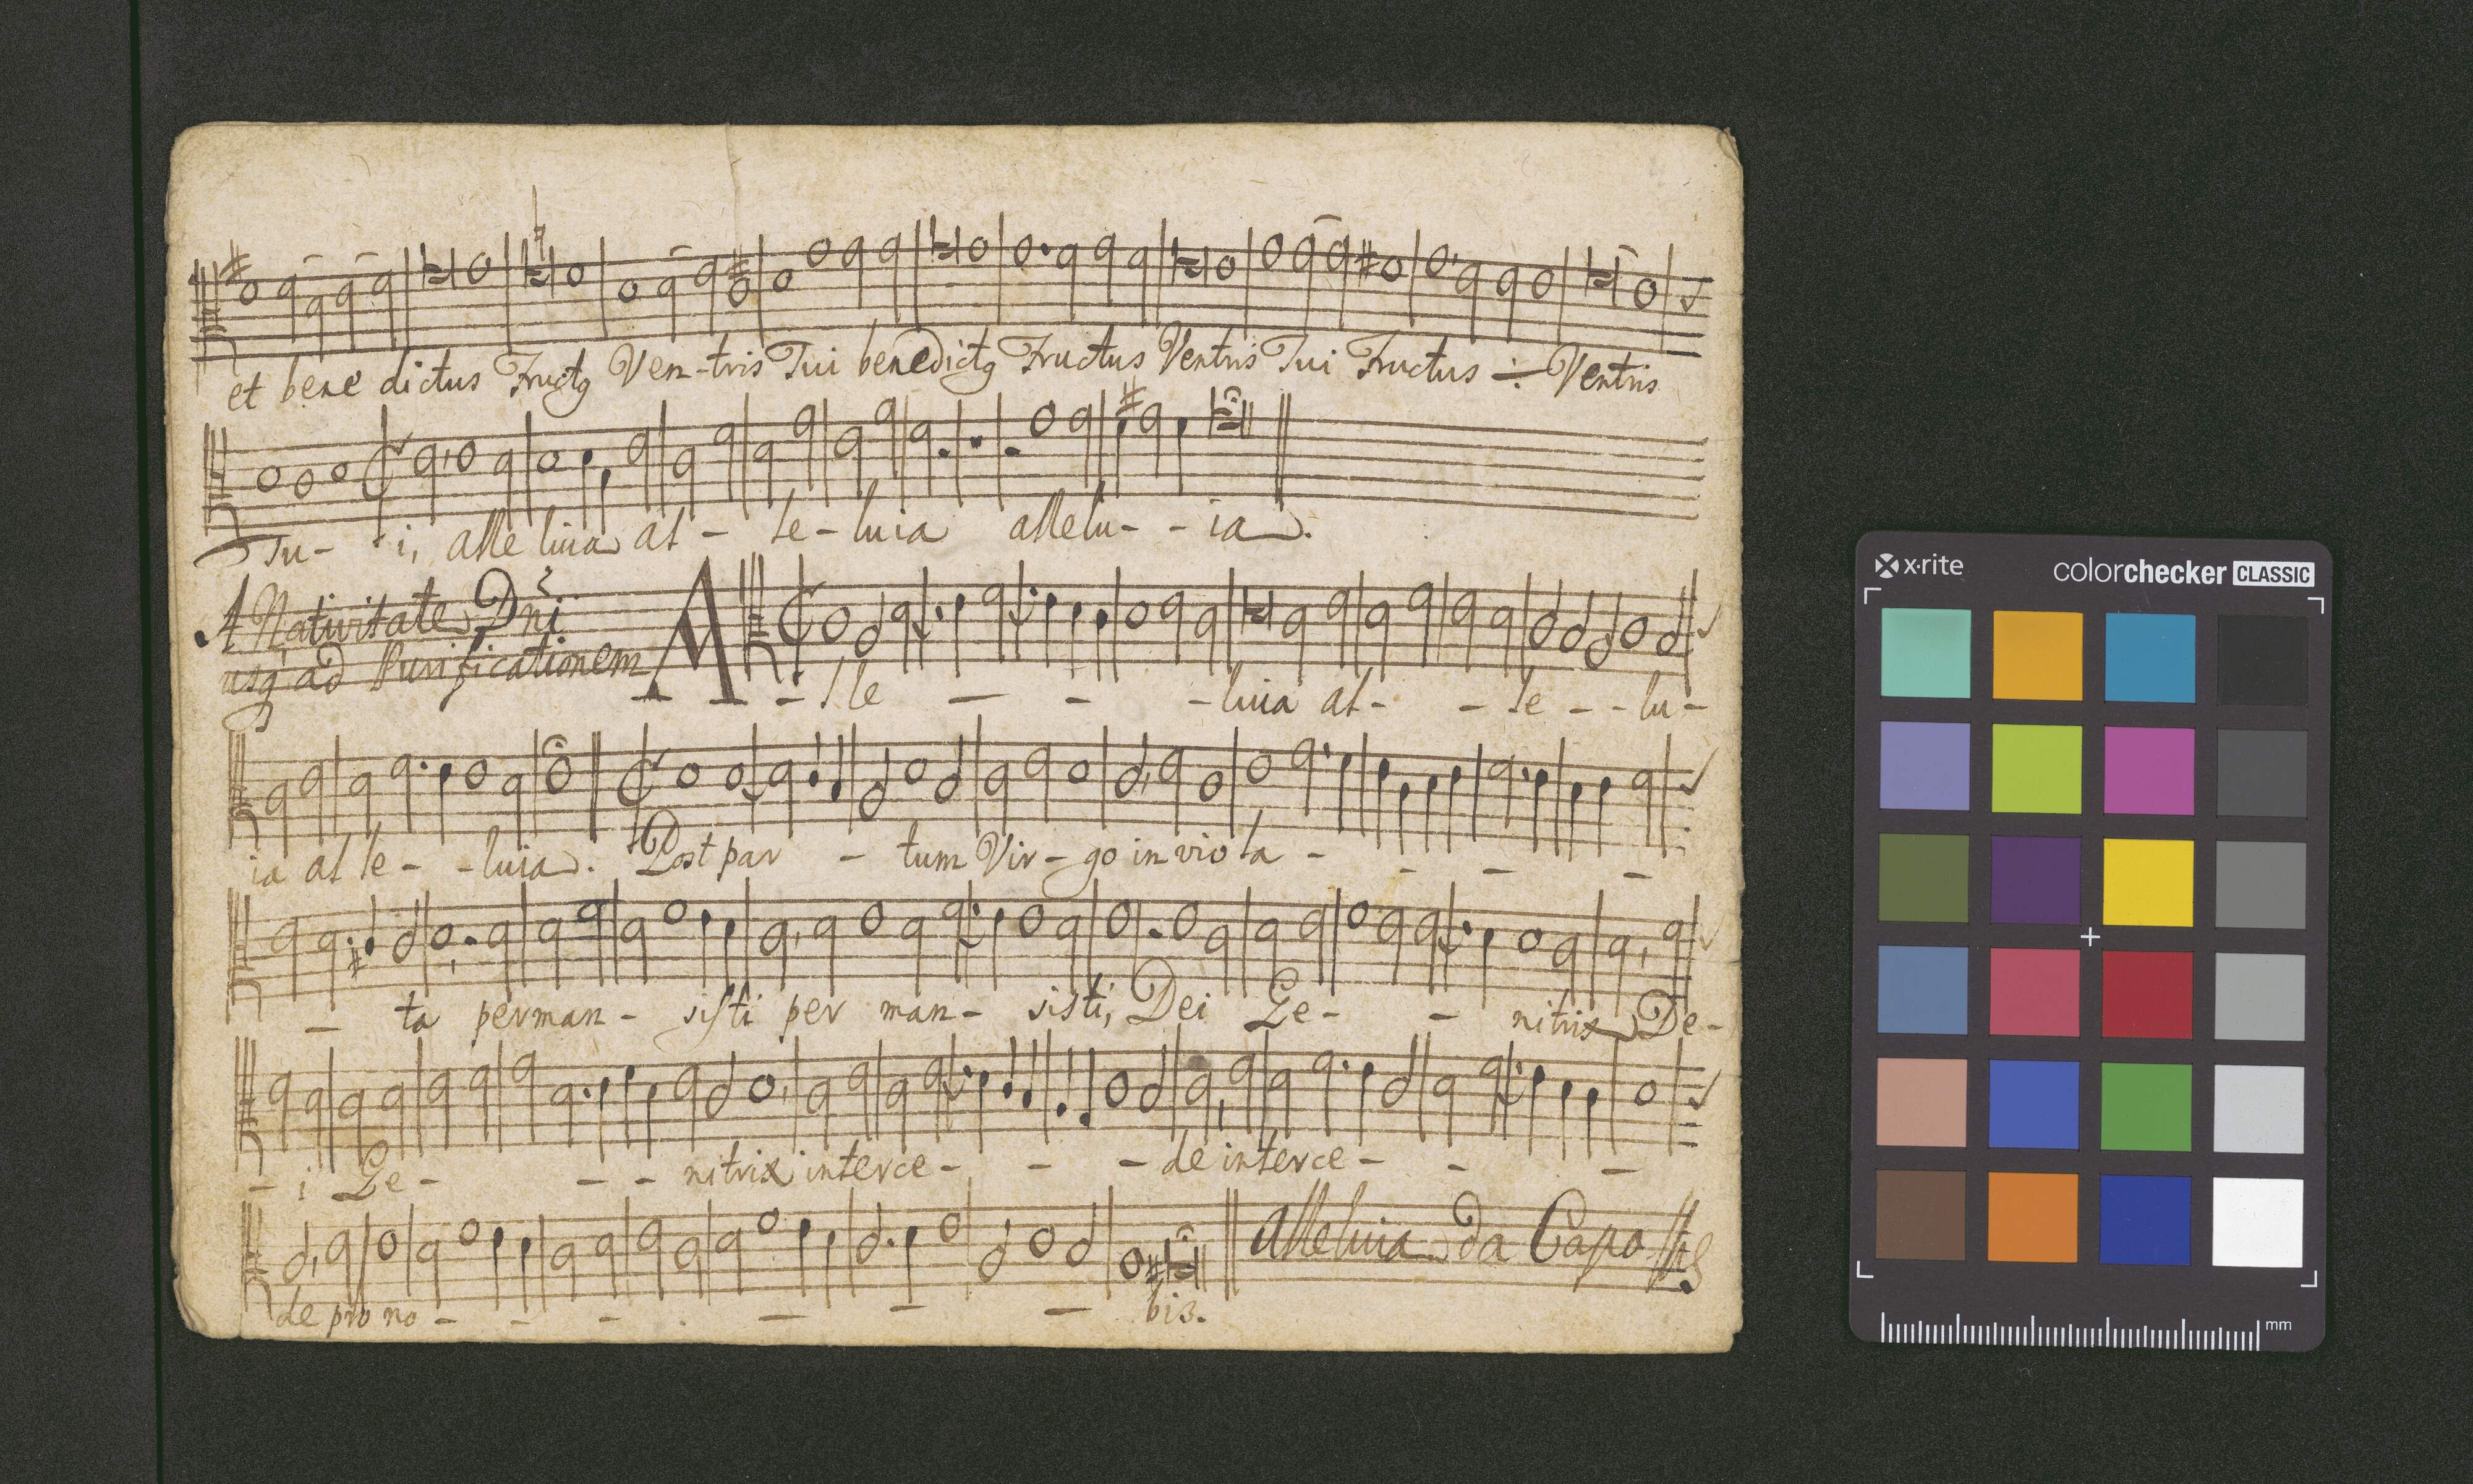 et bene dictus Fructꝰ Ven-tris Tui benedictꝰ Fructus Ventris Tui Fructus ÷ Ventris
Tu- i, alle luia al - le-luia allelu- - ia.
A Nativitate Dñi
usq; ad Purificationem
A - - - lle - - -luia al- - le - - lu-
ia al le- -luia. Post par - tum Vir-go in vio la - - - -
- ta perman- sisti per man- sisti, Dei Ge- - nitrix De-
- i Ge- - - nitrix interce- - - de interce- - -
de pro no - - - - - - bis. Alleluia da Capo
x·rite colorchecker CLASSIC
mm